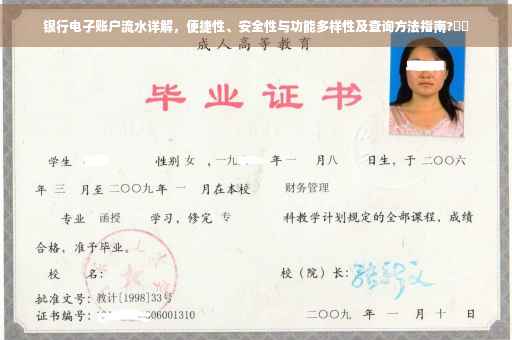 银行电子账户流水详解，便捷性、安全性与功能多样性及查询方法指南?
成人高等教育
毕业证书
学生 性别 女 ，一九 年一 月八 日生，于 二〇〇六
年 三 月至 二〇〇九 年 一 月在本校 财务管理
专业 函授 学习，修完 专 科教学计划规定的全部课程，成绩
合格，准予毕业。
校 名： 校（院）长：
批准文号：教计[1998]33号
证书编号： 06001310 二〇〇九 年 一 月 十 日